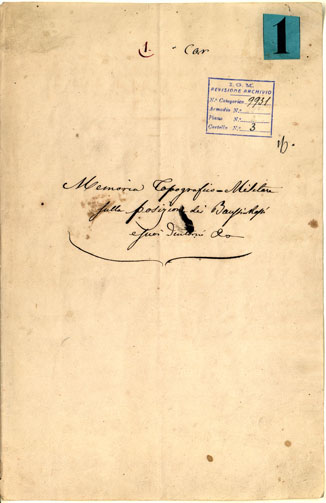 1
1. Car
I. G. M.
REVISIONE ARCHIVIO
N.º Categorico 9931
Armadio N.º
Piano N.º
Cartella N.º 3
Memoria Topografico-Militare
sulla posizione di
e suoi dintorni